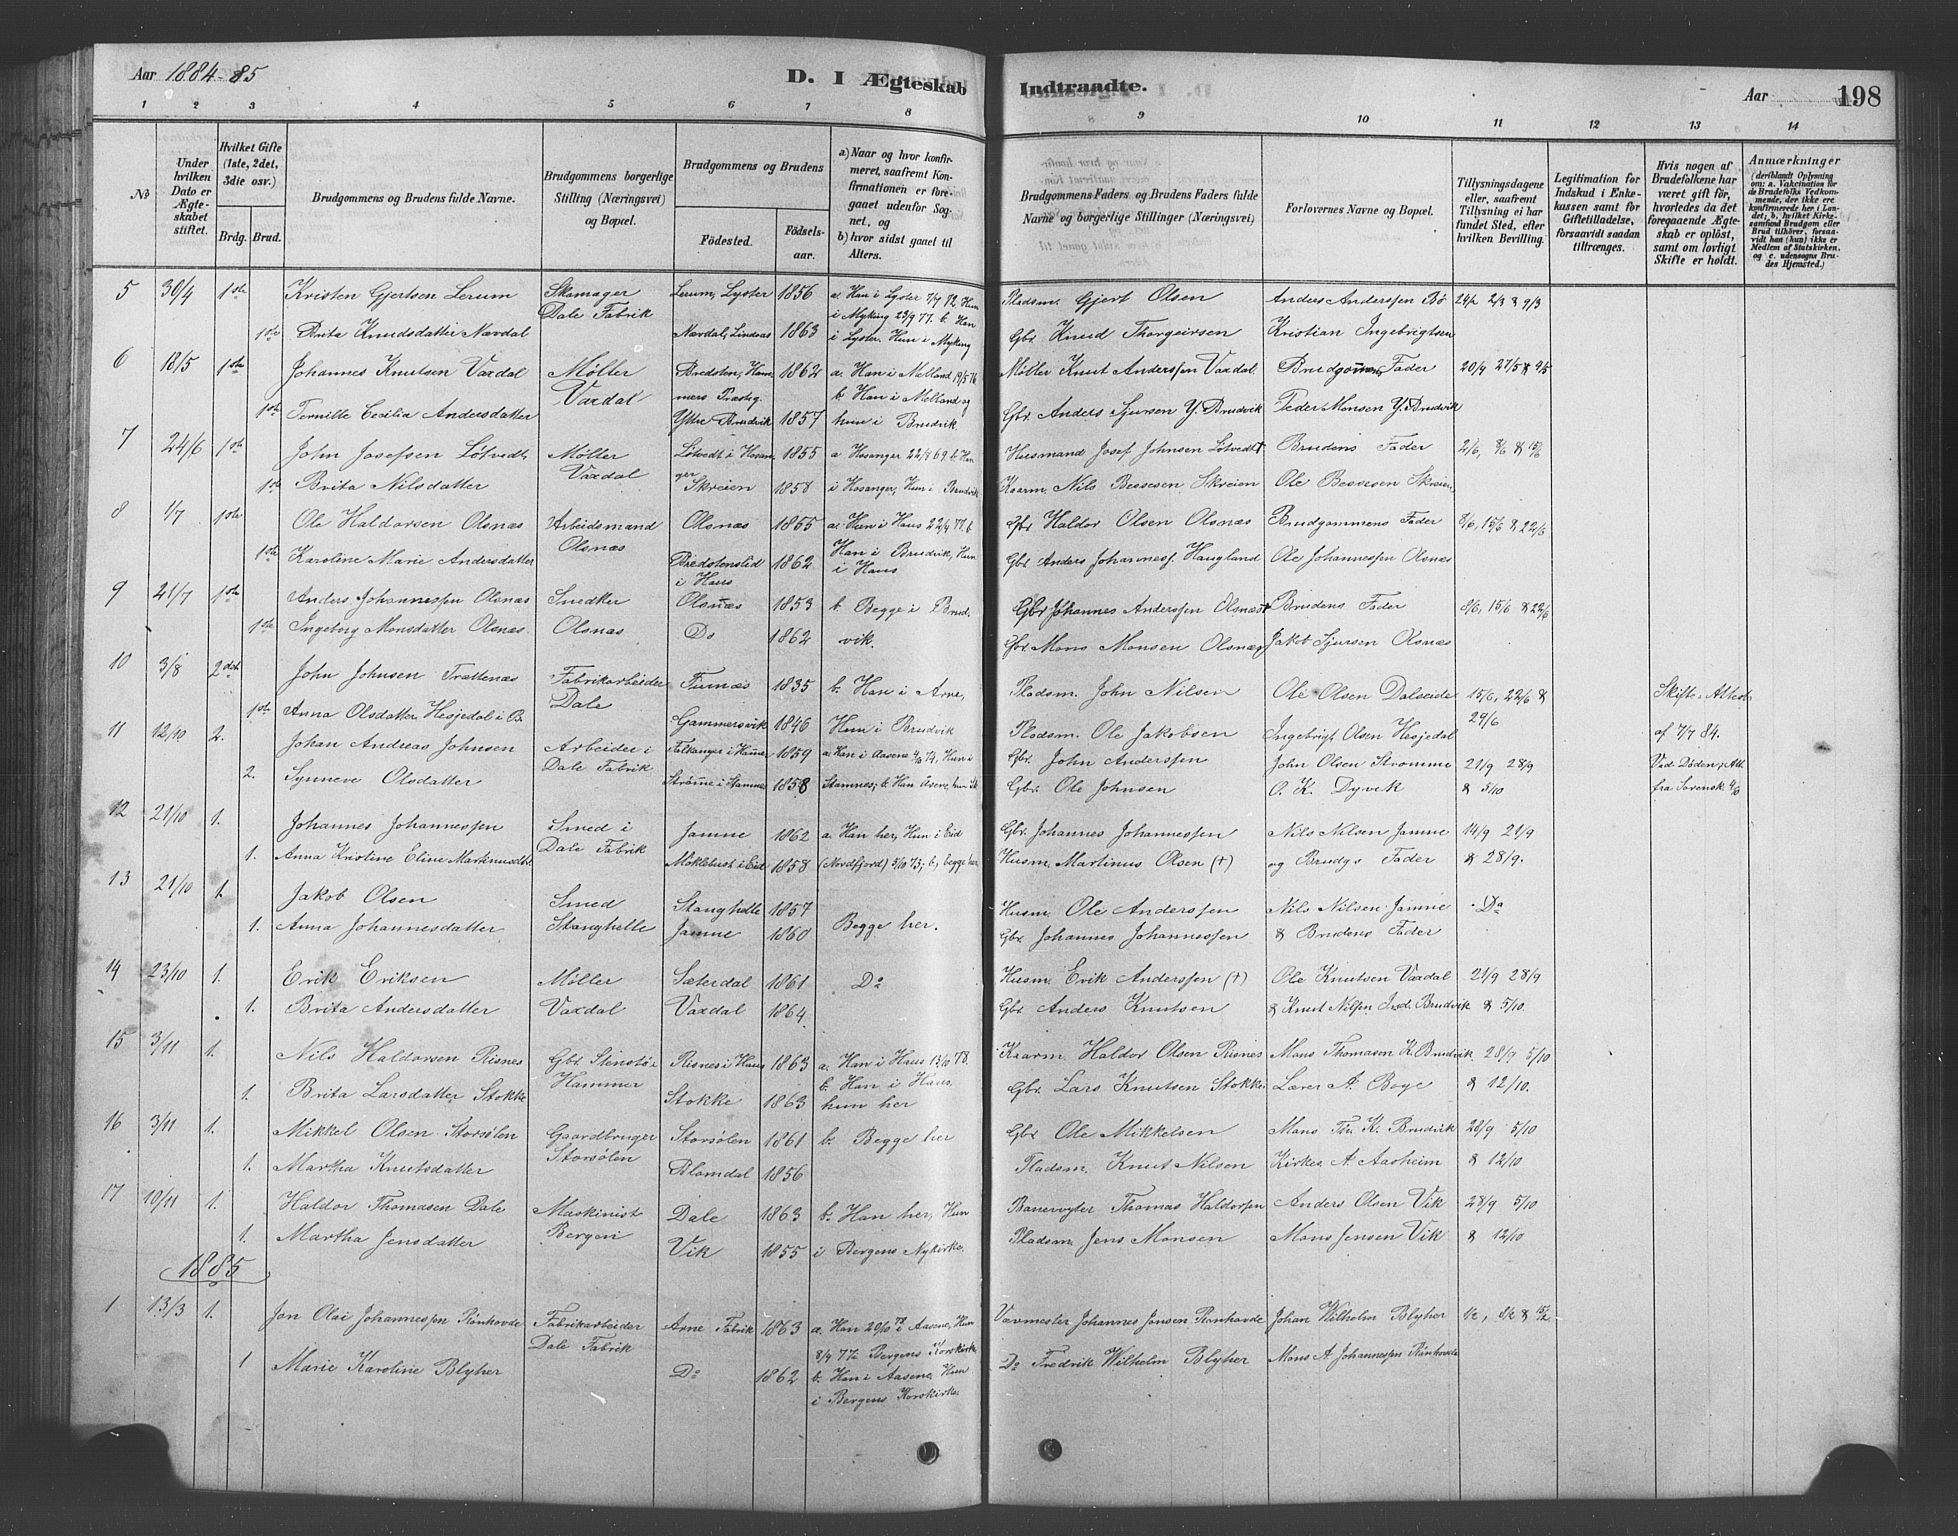 Aar 1884-85
D. I Ægteskab
Indtraadte.
Aar
198
1 2 3 4 5 6 7 8 9 10 11 12 13 14
No
Under hvilken Dato er Ægteskabet stiftet.
Hvilket Gifte (1ste, 2det, 3die osv.)
Brdg. Brud.
Brudgommens og Brudens fulde Navne.
Brudgommens borgerlige Stilling (Næringsvei) og Bopæl.
Brudgommens og Brudens
Fødested.
Fødselsaar.
a) Naar og hvor konfirmeret, saafremt Konfirmationen er foregaaet udenfor Sognet, og
b) hvor sidst gaaet til Alters.
Brudgommens Faders og Brudens Faders fulde Navne og borgerlige Stillinger (Næringsvei)
Forlovernes Navne og Bopæl.
Tillysningsdagene eller, saafremt Tillysning ei har fundet Sted, efter hvilken Bevilling.
Legitimation for Indskud i Enkekassen samt for Giftetilladelse, forsaavidt saadan tiltrænges.
Hvis nogen af Brudefolkene har været gift før, hvorledes da det foregaaende Ægteskab er opløst, samt om lovligt Skifte er holdt.
Anmærkninger (deriblandt Oplysning om: a. Vakcination for de Brudefolks Vedkommende, der ikke ere konfirmerede her i Landet; b. hvilket Kirkesamfund Brudgom eller Brud tilhører, forsaavidt han (hun) ikke er Medlem af Statskirken, og c. udensogns Brudes Hjemsted.)
5 30/4 1ste Kristen Gjertsen Lerum Skomager Lerum, Lyster 1856 a. Han i Lyster 7/7 72, Hun Pladsm. Gjert Olsen Anders Anderssen Bø 24/2 2/3 & 9/3
Dale Fabrik i Myking 23/9 77. b. Han
1ste Brita Knudsdatter Nævdal Nævdal, Lindaas 1863 i Lyster. Hun i Myking Gbr. Knud Thorgeirsen Kristian Ingebrigtsen
6 18/5 1ste Johannes Knutsen Vaxdal Møller Bredsten, Ham- 1862 a. Han i Melland 19/5 76 Møller Knut Anderssen Vaxdal Brudgommens Fader 20/4 27/5 & 9/5
Vaxdal mers Præsteg. b. Han i Melland og
1ste Pernille Cecilia Andersdatter Yttre Brudvik 1857 hun i Brudvik. Gbr. Anders Sjursen Y. Brudvik Peder Monsen Y. Brudvik
7 24/6 1ste John Josefsen Løtvedt, Møller Løtvedt i Hosan- 1855 a Hosanger 22/8 69. b. Han Husmand Josef Johnsen Løtvedt † Brudens Fader 2/6, 8/6 & 15/6
Vaxdal ger
1ste Brita Nilsdatter Skreien 1858 i Hosanger, Hun i Brudvik Kaarm. Nils Bessesen Skreien Ole Bessesen Skreien,
8 1/7 1ste Ole Haldorsen Olsnæs Arbeidsmand Olsnæs 1855 a. Hun i Haus 22/4 77. b. Gbr. Haldor Olsen Olsnæs Brudgommens Fader 8/6, 15/6 & 22/6
Olsnæs Han i Brudvik, Hun
1ste Karoline Marie Andersdatter Bredstenslid i Haus 1862 i Haus Gbr. Anders Johanness. Haugland Ole Johannessen Olsnæs
9 21/7 1ste Anders Johannessen Olsnæs Snedker Olsnæs 1853 b. Begge i Brud- Gbr Johannes Anderssen Olsnæs † Brudens Fader 8/6, 15/6 & 22/6
1ste Ingeborg Monsdatter Olsnæs Olsnæs Do 1862 vik. Gbr Mons Monsen Olsnæs Jakob Sjursen Olsnæs
10 3/8 2det John Johnsen Trættenæs Fabrikarbeider Furnæs 1835 b. Han i Arne, Pladsm. John Nilsen Ole Olsen Dalseide 15/6, 22/6 & Skifte-Attest
Dale 29/6
1ste Anna Olsdatter Hesjedal i B. Gammersvik 1846 Hun i Brudvik Pladsm. Ole Jakobsen Ingebrigt Olsen Hesjedal af 7/7 84.
11 12/10 2. Johan Andreas Johnsen Arbeider i Falkanger i Hamre 1859 a. Han i Aasene 74, Hun i Gbr. John Anderssen John Olsen Strømme 21/9 28/9 Ved Døden; Att
Dale Fabrik
2. Synneve Olsdatter Strømme i Stamnes 1858 Stamnes; b. Han Asene, hun St Gbr. Ole Johnsen O. K. Dyvik & 5/10 fra Sorensk. 4/10
12 21/10 1. Johannes Johannessen Smed i Jamne 1862 a. Han her, Hun i Eid Gbr. Johannes Johannessen Nils Nilsen Jamne 14/9 21/9
Dale Fabrik
1. Anna Kristine Eline Martinusdtr. Møklebust i Eid 1858 (Nordfjord) 5/10 73; b. begge her Husm. Martinus Olsen (†) og Brudgs Fader & 28/9.
13 21/10 1. Jakob Olsen Smed Stanghelle 1857 Husm. Ole Anderssen Nils Nilsen Jamne Do
1. Anna Johannesdatter Stanghelle Jamne 1860 Begge her. Gbr. Johannes Johannessen & Brudens Fader
14 23/10 1. Erik Eriksen Møller Sæterdal 1861 Do Husm. Erik Anderssen (†) Ole Knutsen Vaxdal 21/9 28/9
1. Brita Andersdatter Vaxdal Vaxdal 1864 Gbr. Anders Knutsen & Knut Nilsen Ind. Brudvik & 5/10.
15 3/11 1. Nils Haldorsen Risnes Gbr. Stenstø i Risnes i Haus 1863 a. Han i Haus 13/10 78. Kaarm. Haldor Olsen Risnes Mons Thomasen K. Brudvik 28/9 5/10
Hammer b. Han i Haus,
1. Brita Larsdatter Stokke Stokke 1863 hun her Gbr. Lars Knutsen Stokke. Lærer A. Boge & 12/10.
16 3/11 1. Mikkel Olsen Storsølen Gaardbruger Storsølen 1861 b. Begge her Gbr Ole Mikkelsen Mons Tho. K. Brudvik 28/9 5/10
Storsølen
1. Martha Knutsdatter Blomdal 1856 Pladsm. Knut Nilsen Kirkes. A. Aarheim & 12/10
17 10/11 1. Haldor Thomasen Dale Maskinist Dale 1863 b. Han her, Hun Banevogter Thomas Haldorsen Anders Olsen Vik 28/9 5/10
Bergen
1. Martha Jensdatter Vik 1855 i Bergens Nykirke. Pladsm. Jens Monsen Mons Jensen Vik & 12/10
1885
1 13/3 1. Jon Olai Johannessen Rønhovde Fabrikarbeider Arne Fabrik 1863 a. Han 29/10 78 i Aasene, Hun Vævmester Johannes Jonsen Rønhovde Johan Wilhelm Blyher 1/2, 8/2 & 15/2
Dale Fabrik 8/4 77 i Bergens Korskirke
1 Marie Karoline Blyher Do 1862 b. Han i Aasene, Hun Do Fredrik Wilhelm Blyher Mons A. Johannessen Rønhovde
i Bergens Korskirke.